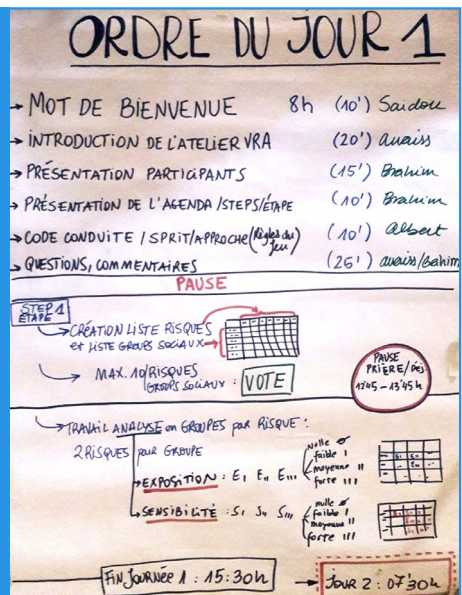 ORDRE DU JOUR 1
→ MOT DE BIENVENUE 8h (10') Saidou
→ INTRODUCTION DE L'ATELIER VRA (20') Anaiss
→ PRÉSENTATION PARTICIPANTS (15') Brahim
→ PRÉSENTATION DE L'AGENDA/STEPS/ÉTAPE (10') Brahim
→ CODE CONDUITE / SPRIT/APPROCHE (Règles du Jeu) (10') Albert
→ QUESTIONS, COMMENTAIRES (25') anaiss/Brahim
PAUSE
STEP 1
ÉTAPE
→ CRÉATION LISTE RISQUES
et LISTE GROUPS SOCIAUX →
→ MAX. 10/RISQUES
GROUPS SOCIAUX : VOTE
PAUSE
PRIÈRE/DÉJ
12'45 – 13'45h
→ TRAVAIL ANALYSE en GROUPES par RISQUE :
2 RISQUES par GROUPE
→ EXPOSITION : E| E|| E|||
nulle ø
faible |
moyenne ||
forte |||
→ SENSIBILITÉ : S| S|| S|||
nulle ø
faible |
moyenne ||
forte |||
FIN JOURNÉE 1 : 15:30h → JOUR 2 : 07'30h